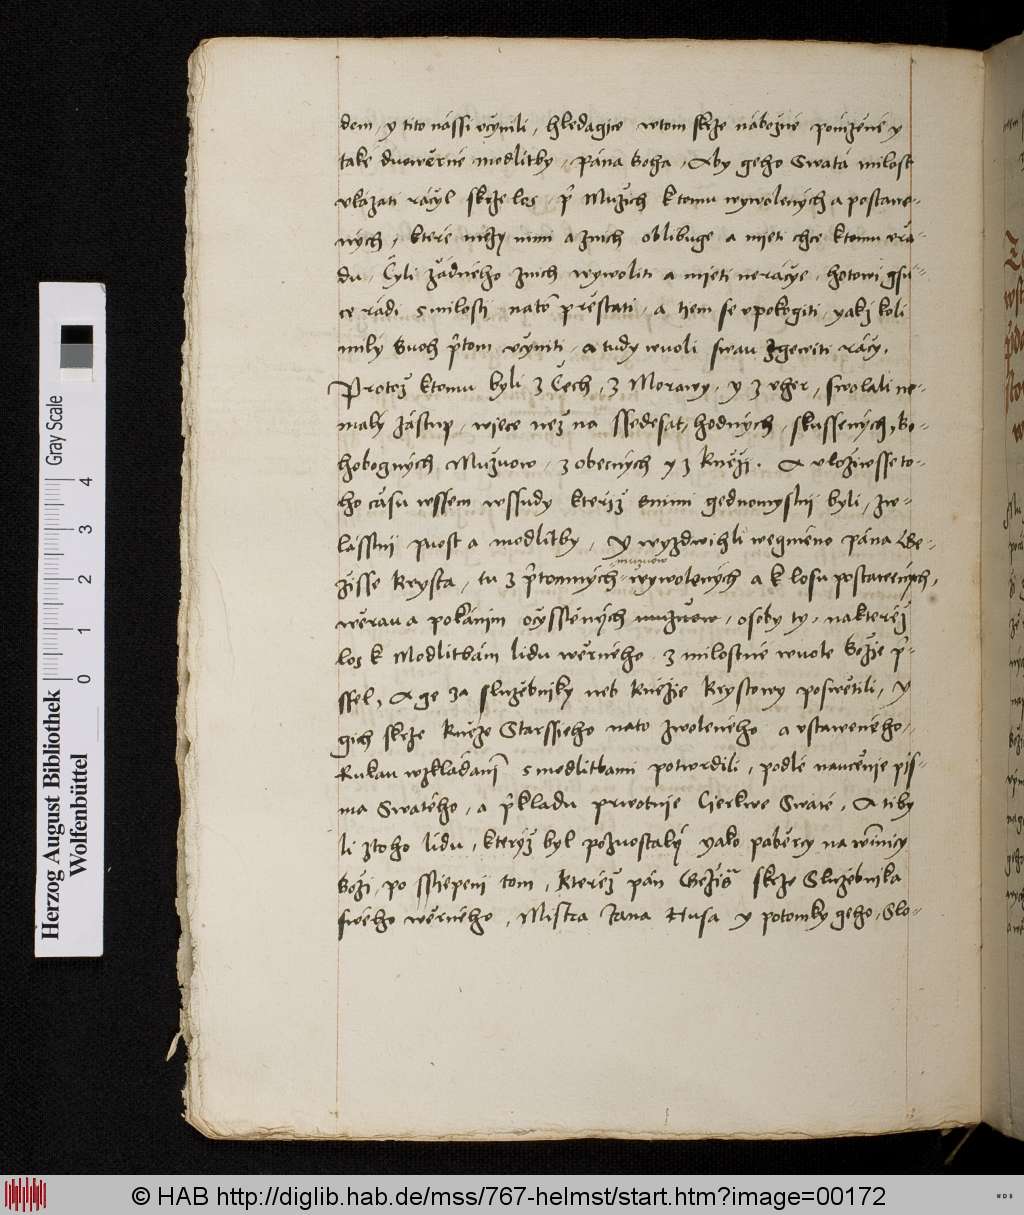 dem, y tito nássi včynili, hledagice wtom skrze nábožné ponížené y
také duowěrné modlitby, pána Boha, Aby geho Swatá milost
vkázati ráčyl skrze los, při Mužích k tomu wywolených a postawe=
ných, které mezy nimi a znich oblibuge a mjeti chce ktomu vrá=
du, Čyli žádného znich wywoliti a mjeti neráčye, hotowi gsu=
ce rádi s milostj nató prěstati, a tjem se vpokogiti, yakž koli
milý Buoh přtom včyniti, a tudy wuoli swau zgewiti ráčy.
Protož ktomu byli z Čech, z Morawy, y z vher, swolali ne=
malý zástup, wjece než na ssedesát, hodných, skussených, Bo=
habogných Mužuow, z obecných y z Kněžj. A vložiwsse to=
ho času wssem wssudy kteříž snimi gednomyslnij byli, zwlá=
lásstnij puost a modlitby, y wyzdwihli wegméno pána Ge=
žjsse Krysta, tu z přtomných mužuow wywolených a k losu postawených,
wěrau a pokánim očysstěných mužuow, osoby ty, nakteréž
los k Modlitbám lidu wěrného z milostné wuole Božie při=
ssel, A ge za služebnjky neb Kněžie Krystowy poswětili, y
gich skrze Kněze Starssieho nato zwoleného a vstaweného,
Rukau wzkládanjm s modlitbami potwrdili, podlé naučenie pís=
ma Swatého, a přkladu prwotnje Cierkwe Swaté, A ti by
li ztoho lidu, kterýž byl pozuostalý yako paběrcy na winnicy
Božj, po sstiepenj tom, kteréž pán Gežjš skrze Služebnjka
swého wěrného, Mistra Jana Husa y potomky geho, Slo=
Herzog August Bibliothek
Wolfenbüttel
Gray Scale
0 1 2 3 4
© HAB http://diglib.hab.de/mss/767-helmst/start.htm?image=00172